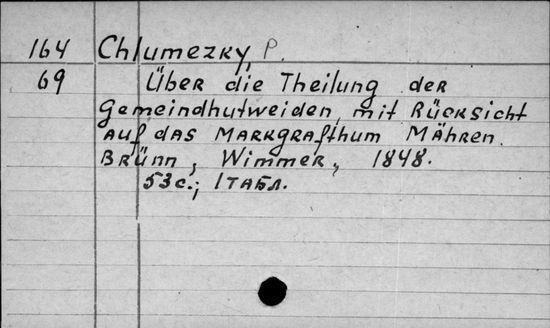 164 Chlumezky, P.
69 Über die Theilung der
Gemeindhutweiden, mit Rücksicht
auf das Markgrafthum Mähren.
Brünn, Wimmer, 1848.
53 с.; 1 табл.